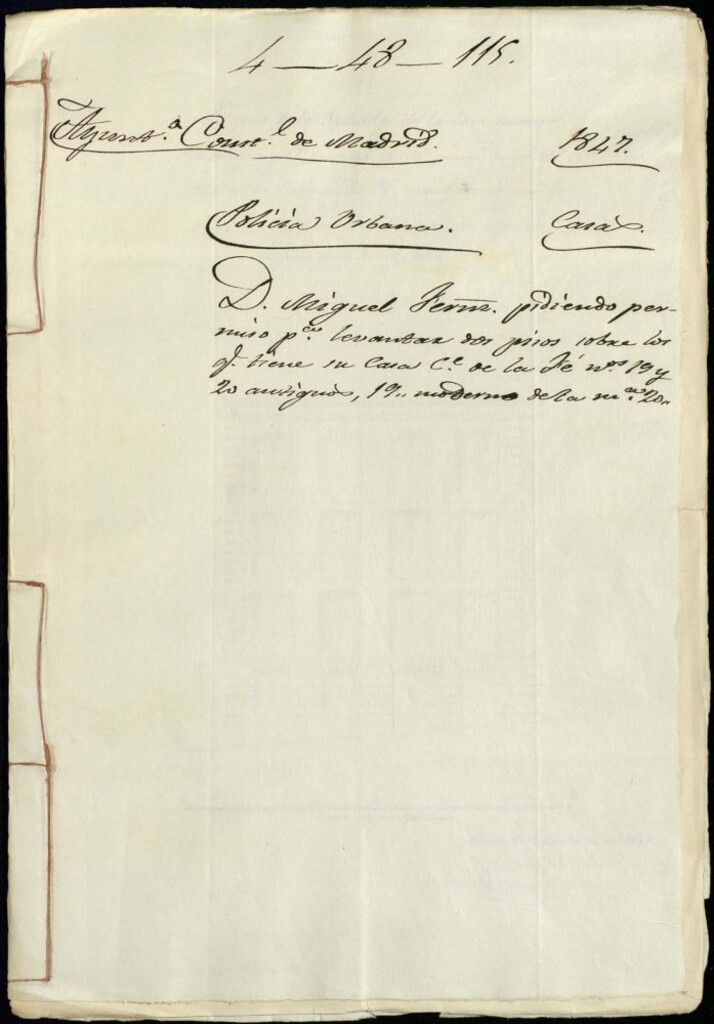 4 — 48 — 115.
Ayunt.º Const.l de Madrid. 1847.
Policía Urbana. Casas.
D. Miguel Fernz. pidiendo per-
miso p.ª levantar dos pisos sobre los
q.e tiene su Casa C.e de la Fé n.os 19 y
20 antiguos, 19,, moderno de la m.a 20.